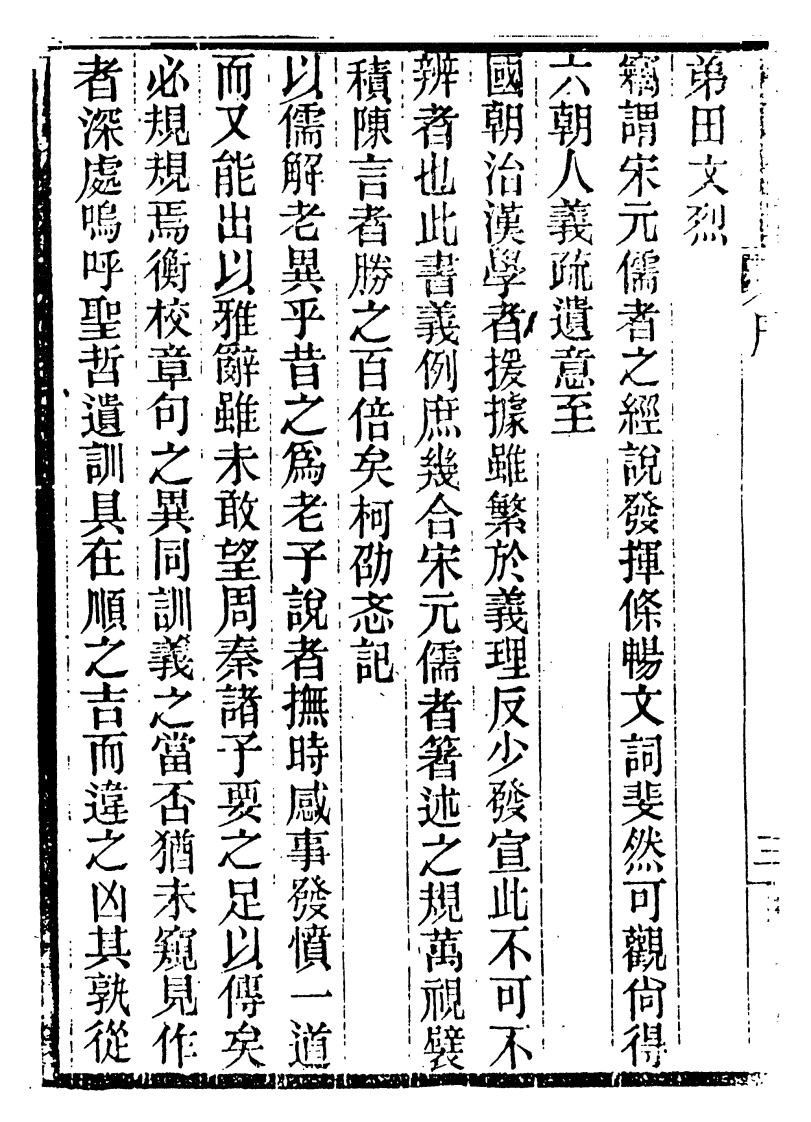 弟田文烈
竊謂宋元儒者之經說發揮條暢文詞斐然可觀尙得
六朝人義疏遺意至
國朝治漢學者援據雖繁於義理反少發宣此不可不
辨者也此書義例庶幾合宋元儒者箸述之規萬視襞
積陳言者勝之百倍矣柯劭忞記
以儒解老異乎昔之爲老子說者撫時感事發憤一道
而又能出以雅辭雖未敢望周秦諸子要之足以傳矣
必規規焉衡校章句之異同訓義之當否猶未窺見作
者深處嗚呼聖哲遺訓具在順之吉而違之凶其孰從